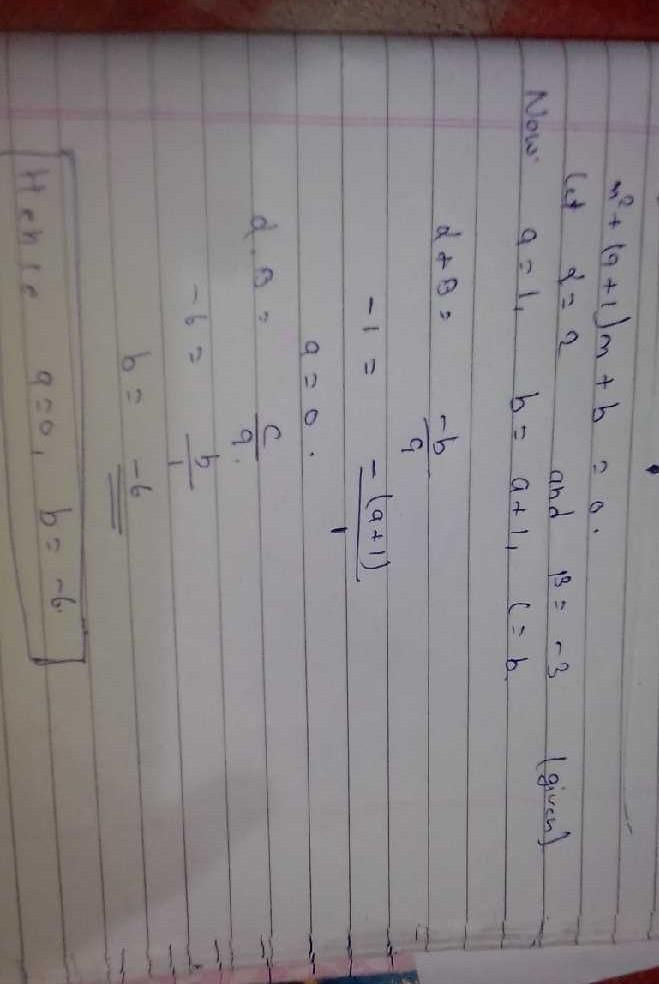 m² + (a+1)m + b = 0.
Let α = 2 and β = -3 (given)
Now a = 1, b = a+1, c = b
α + β = -b/a
-1 = -(a+1)/1
a = 0.
α . β = c/a.
-6 = b/1
b = -6
Hence a=0, b = -6.